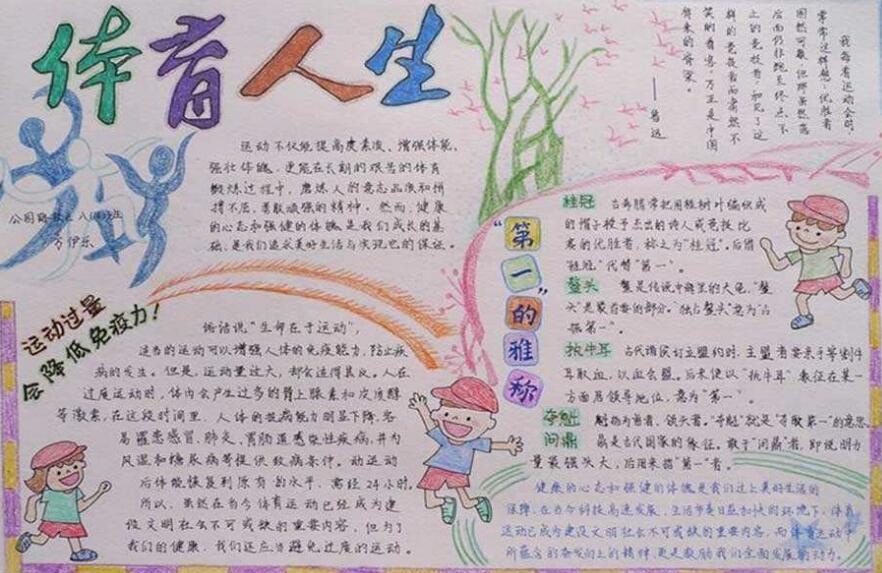 体育人生
运动不仅能提高度素质、增强体能、
强壮体魄,更能在长期的艰苦的体育
锻炼过程中,磨炼人的意志品质和拼
搏不屈、勇敢顽强的精神,然而,健康
的心态和强健的体魄是我们成长的基
础,是我们追求美好生活与实现也的保证。
我每看运动会时,
常常这样想:优胜者
固然可敬,但那虽然落
后而仍非跑至终点不
止的竞技者,和见了这
样的竞技者而肃然不
笑的看客,乃正是中国
将来的脊梁。
——鲁迅
方伊乐
运动过量
会降低免疫力!
俗话说"生命在于运动",
适当的运动可以增强人体的免疫能力,防止疾
病的发生。但是,运动量过大,却会适得其反。人在
过度运动时,体内会产生过多的肾上腺素和皮质醇
等激素,在这段时间里,人体的抗病能力明显下降,容
易罹患感冒、肺炎、胃肠道感染性疾病,并为
风湿和糖尿病等提供致病条件。动运动
后体能恢复到原有的水平,需经24小时。
所以,虽然在当今体育运动已经成为建
设文明社会不可或缺的重要内容,但为了
我们的健康,我们还应当避免过度的运动。
"第一"的雅称
桂冠 古希腊常把用桂树叶编织成
的帽子授予杰出的诗人或竞技比
赛的优胜者,称之为"桂冠"。后借
"桂冠"代替"第一"。
鳌头 鳌是传说中海里的大龟,"鳌
头"是最首要的部分。"独占鳌头"意为"占
据第一"。
执牛耳 古代诸侯订立盟约时,主盟者要亲手等割牛
耳取血,以血会盟。后来便以"执牛耳"表征在某一
方面居领导地位,意为"第一"。
夺魁 魁指为首者,领头者。"夺魁"就是"夺取第一"的意思
问鼎 鼎是古代国家的象征。敢于"问鼎"者,即说明力
量最强头大,后用来指"第一"者。
健康的心态和强健的体魄是我们过上美好生活的
保障,在当今科技高速发展、生活节奏日益加快的环境下,体育
运动已成为建设文明社会不可或缺的重要内容,而体育运动中
所蕴含的奋发向上的精神,更是激励我们全面发展的动力。